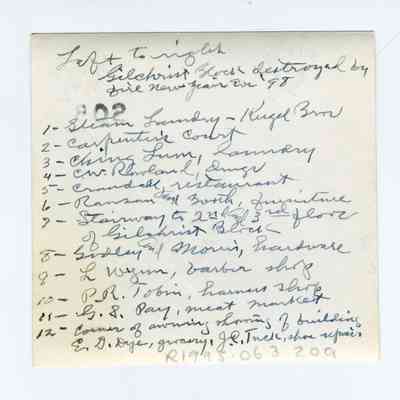 Left to right
Gilchrist Block destroyed by
fire New Year Eve '98
802
1- Steam Laundry - Kugel Bros
2- Carpenter's Court
3- Ching Lum, laundry
4- C.W. Rowland, drugs
5- Crandall, restaurant
6- Ransom and Booth, furniture
7- Stairway to 2nd & 3rd floors
of Gilchrist Block
8- Godley and Morris, hardware
9- L Wynn, barber shop
10- P.R. Tobin, harness shop
11- G.S. Pay, meat market
12- corner of awning showing of building
E. D. Dye, grocery, J.E. Tuck, shoe repair
R1995.063.20a